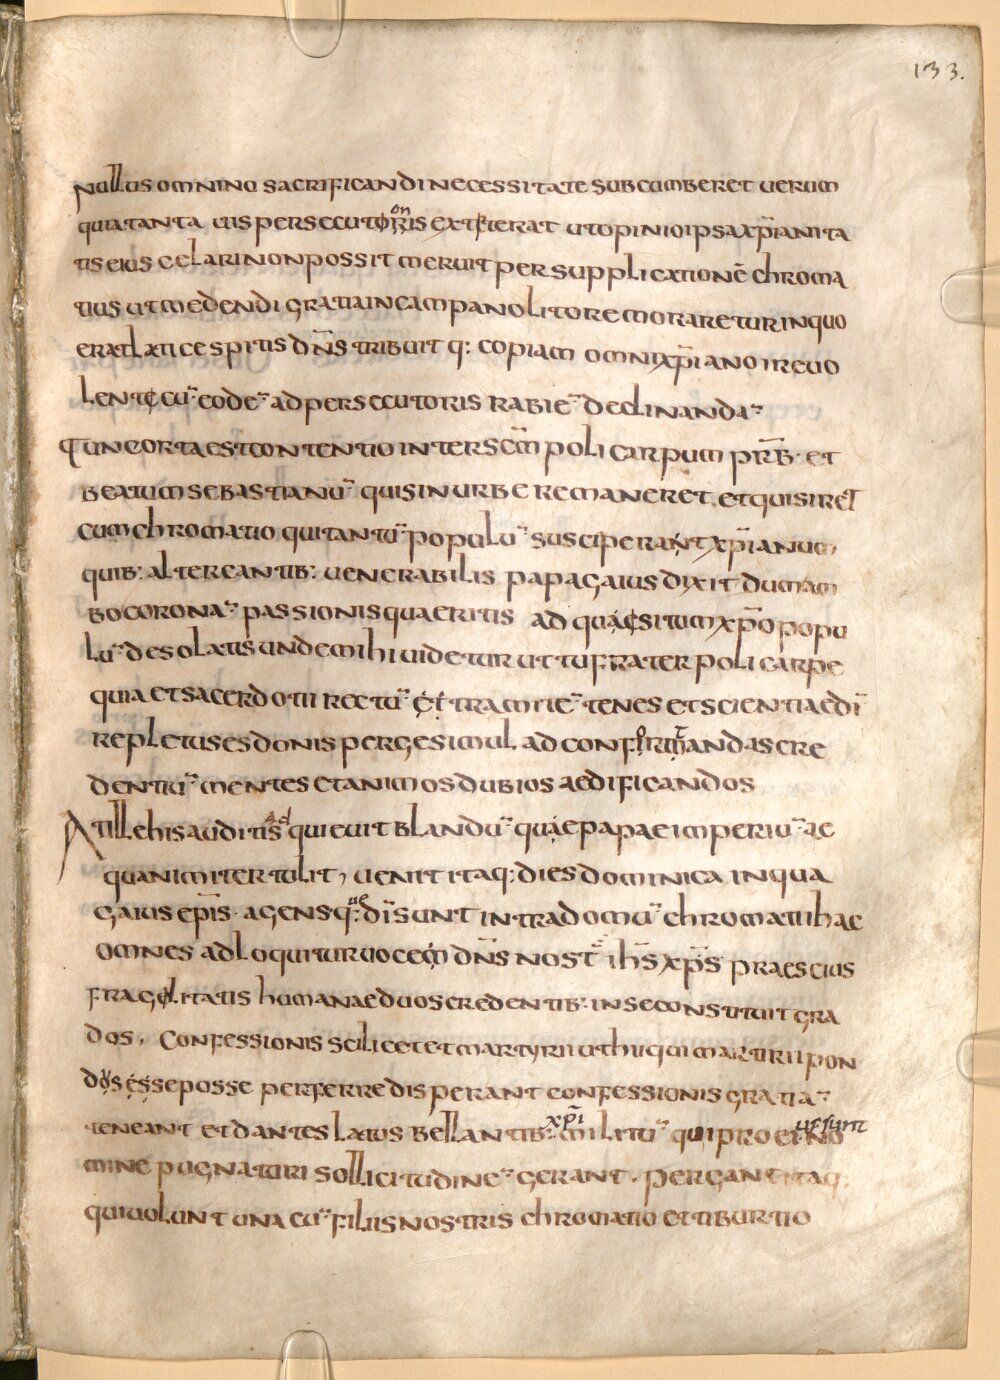 133.
nullus omnino sacrificandi necessitate subcumberet uerum
quia tanta uis persecutoris extiterat ut opinio ipsa xp̄ianita
tis eius celari non possit meruit per supplicationē chroma
tius ut medendi gratia in campano litore moraretur in quo
erat lati cespitis dn̄s tribuit q: copiam omni xp̄iano ir euo
lente cū eodē ad persecutoris rabiē declinandā
Tunc orta est contentio inter sc̄m policarpum prb̄. et
beatum sebastianū quis in urbe remaneret. et quis iret
cum chromatio qui tantū populū susciperant xp̄ianum
quib: altercantib: uenerabilis papa gaius dixit dum am
bo coronā passionis quaeritis adquaesitum xp̄o popu
lū desolatis unde mihi uidetur ut tu frater policarpe
quia et sacerdotii rectū et tramitē tenes et scientia edī
repletus es donis perge simul ad confirmandas cre
dentiū mentes et animos dubios aedificandos
At ille his auditis quieuit blandū quae papae imperiū ac
quanimiter tulit, uenit itaq: dies dominica in qua
gaius epīs. agens q: dīs sunt intra domū chromatii hac
omnes adloquitur uocem dn̄s nost̄ ih̄s xp̄s praescius
fragilitatis humanae duos credentib: in se constituit gra
dos. Confessionis scilicet et martyrii ut hii qui martirii pon
dus esse posse perferre disperant confessionis gratiā
teneant et dantes laus bellantib: xp̄i militū qui pro ei no uesunt
mine pugnaturi sollicitudinē gerant. pergant itaq:
qui uolunt una cū filiis nostris chromatio et tiburtio